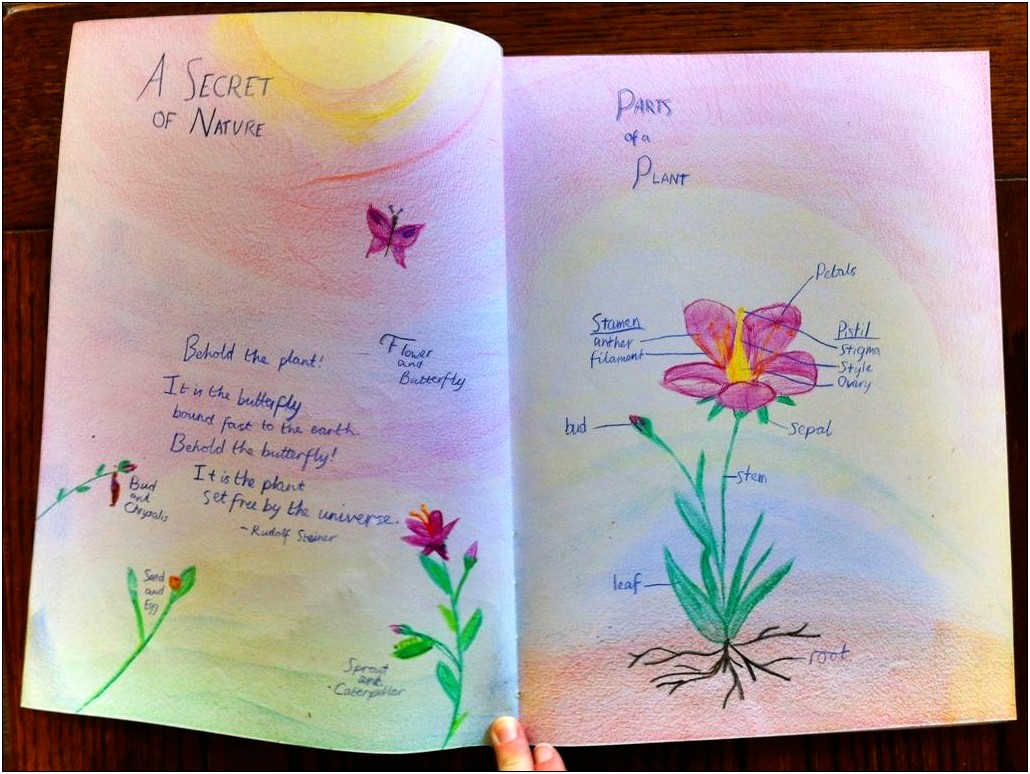 A SECRET
OF NATURE
Behold the plant!
It is the butterfly
bound fast to the earth.
Behold the butterfly!
It is the plant
set free by the universe.
- Rudolf Steiner
Flower
and
Butterfly
Bud
and
Chrysalis
Seed
and
Egg
Sprout
and
Caterpillar
PARTS
of a
PLANT
Petals
Stamen
anther
filament
Pistil
Stigma
Style
Ovary
bud
sepal
stem
leaf
root